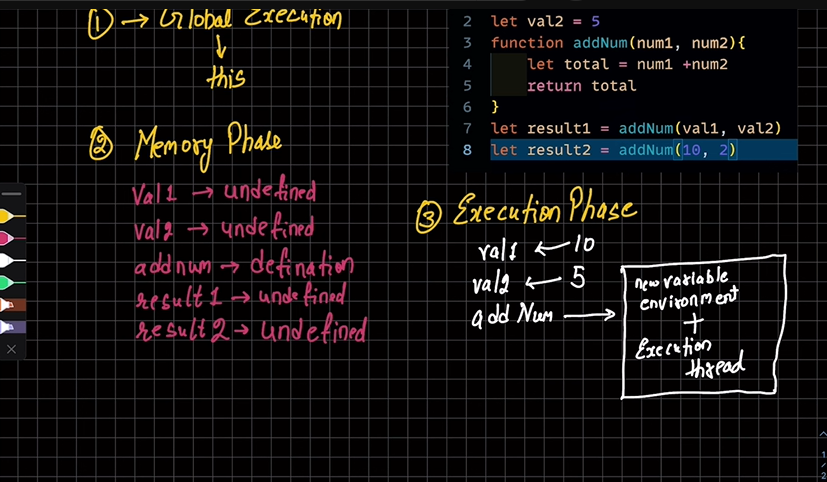 ① → Global Execution
↓
this
② Memory Phase
Val1 → undefined
val2 → undefined
addnum → defination
result1 → undefined
result2 → undefined
2 let val2 = 5
3 function addNum(num1, num2){
4 let total = num1 +num2
5 return total
6 }
7 let result1 = addNum(val1, val2)
8 let result2 = addNum(10, 2)
③ Execution Phase
val1 ← 10
val2 ← 5
add Num →
new variable
environment
+
Execution
thread
1
/
2